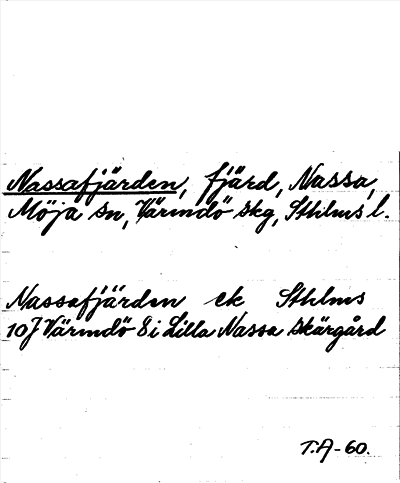 Nassafjärden, fjärd, Nassa,
Möja sn, Värmdö skg, Sthlms l.
Nassafjärden ek Sthlms
10J Värmdö 8i Lilla Nassa skärgård
T.A-60.